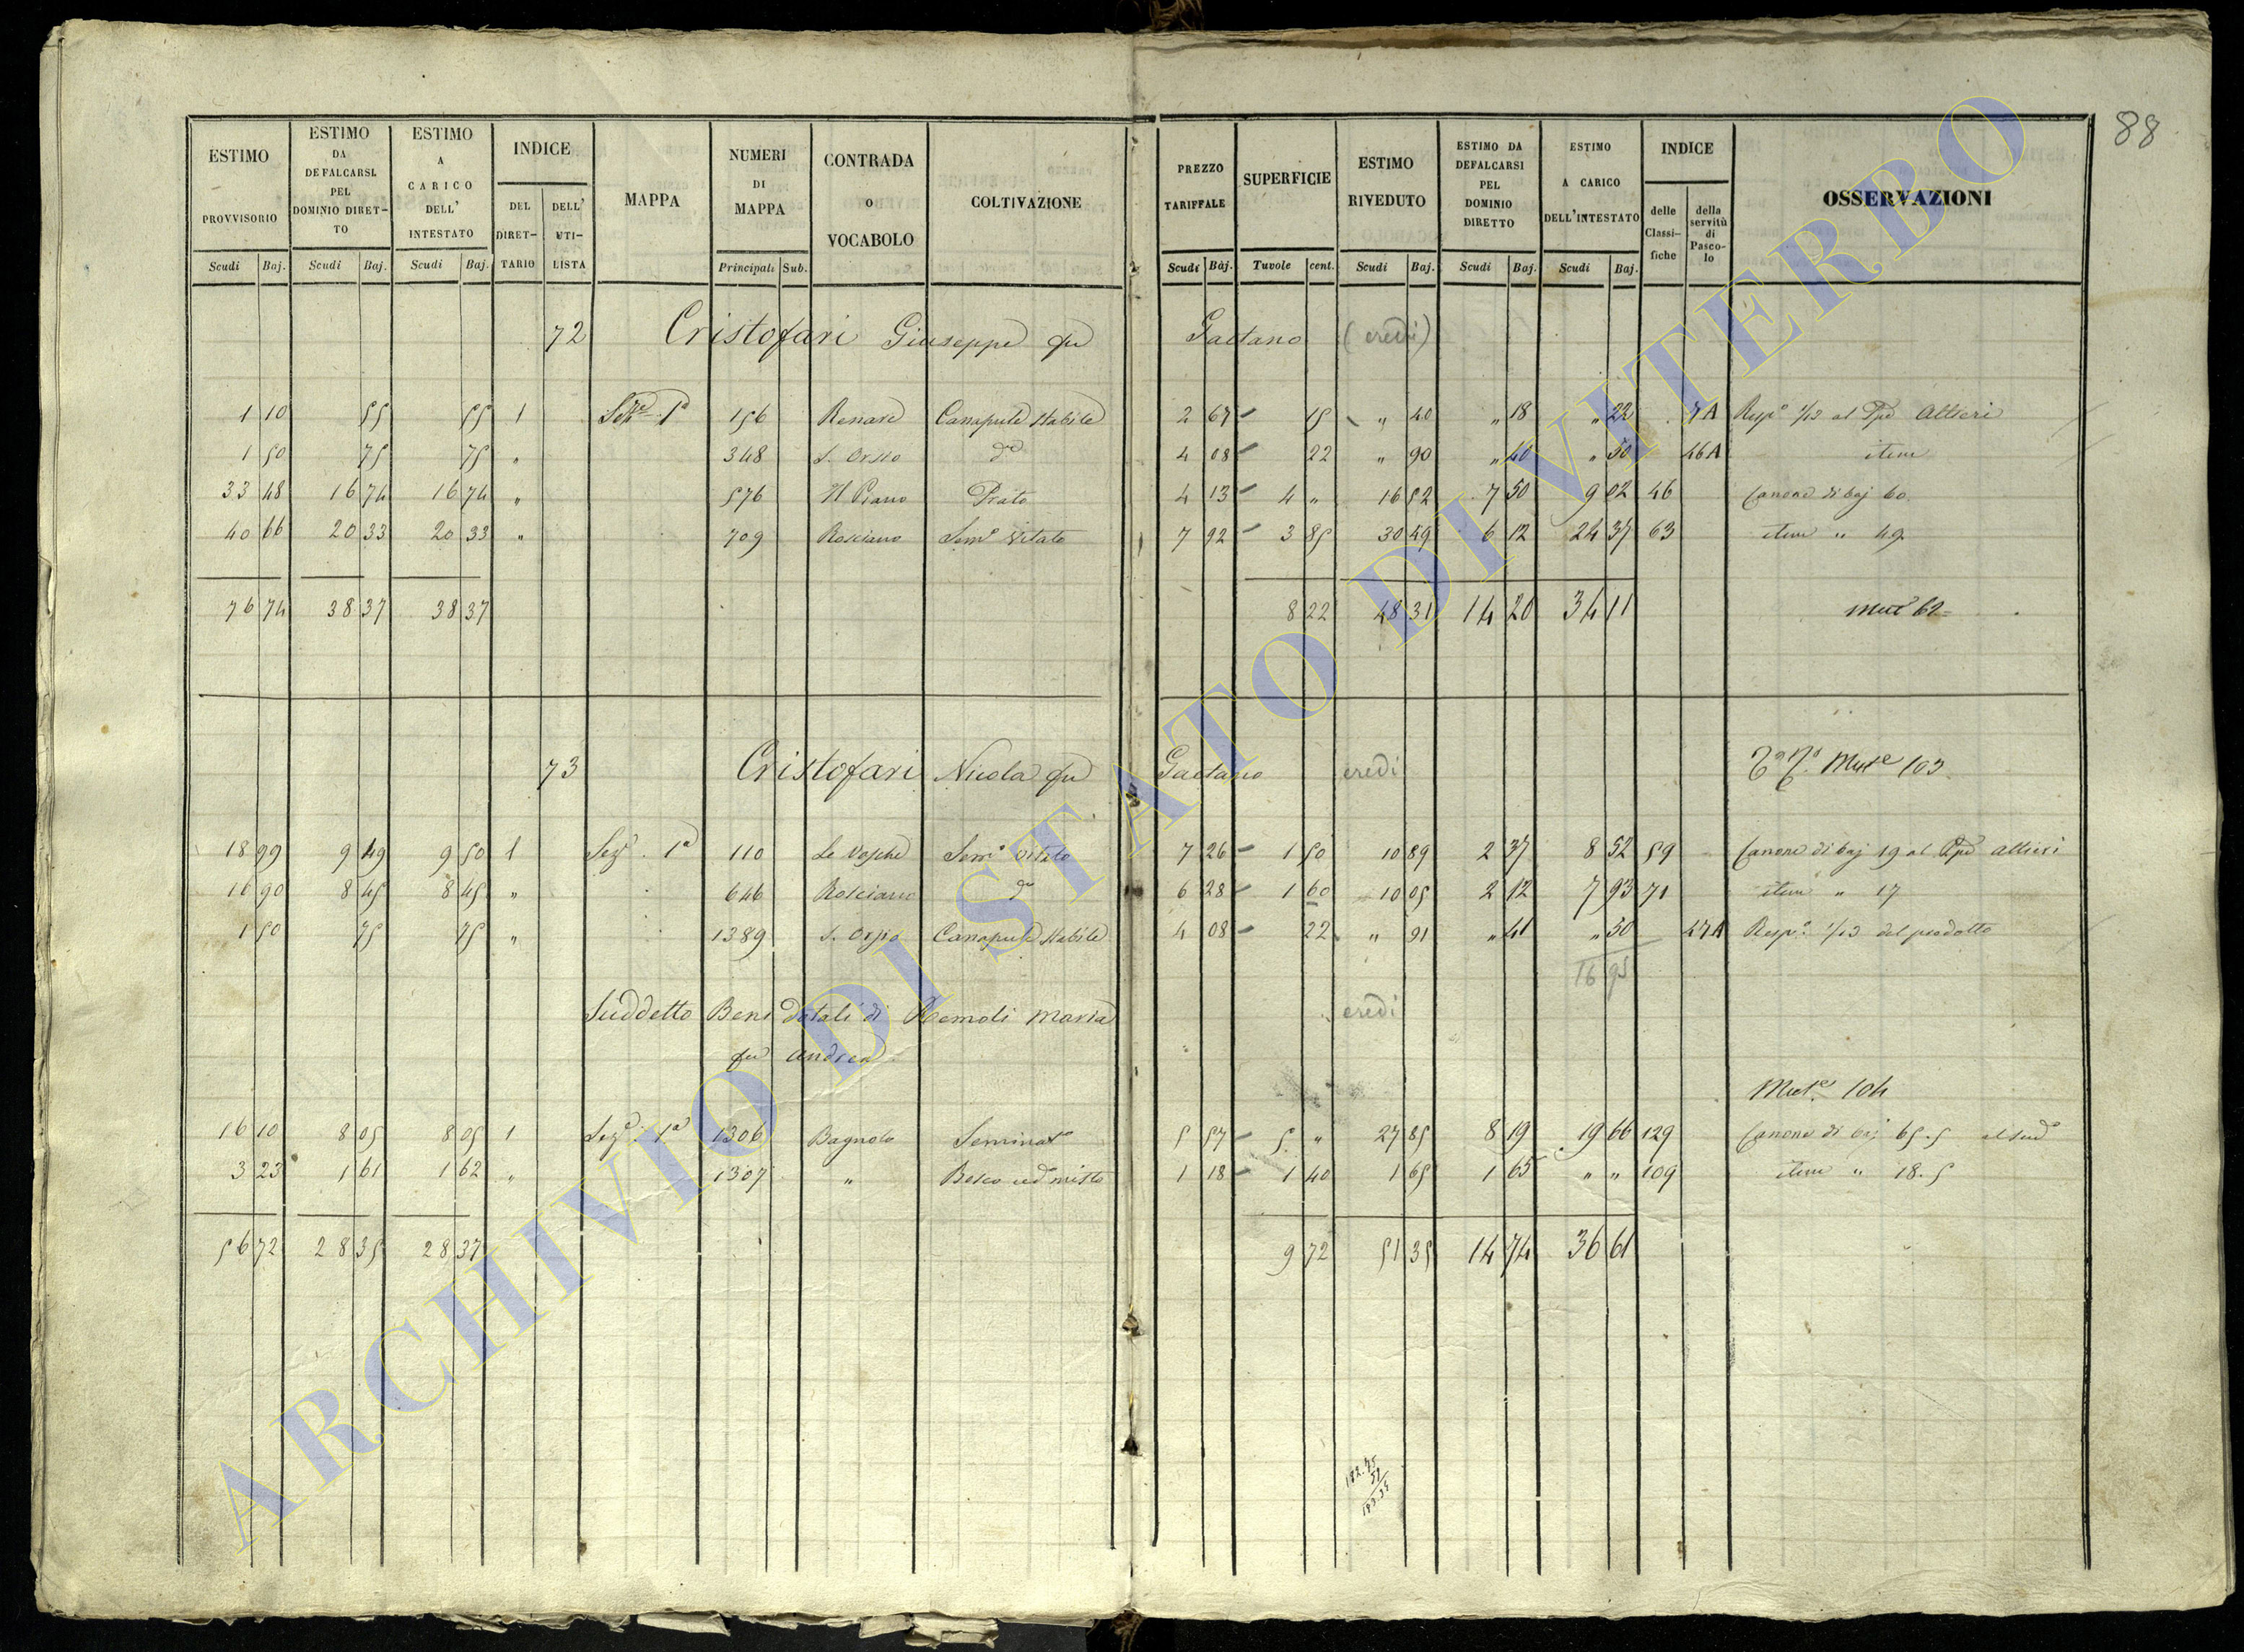 88
ESTIMO PROVVISORIO | ESTIMO DA DEFALCARSI PEL DOMINIO DIRET-TO | ESTIMO A CARICO DELL' INTESTATO | INDICE DEL DIRET-TARIO | DELL' UTI-LISTA | MAPPA | NUMERI DI MAPPA | CONTRADA O VOCABOLO | COLTIVAZIONE | PREZZO TARIFFALE | SUPERFICIE | ESTIMO RIVEDUTO | ESTIMO DA DEFALCARSI PEL DOMINIO DIRETTO | ESTIMO A CARICO DELL'INTESTATO | INDICE delle Classi-fiche | della servitù di Pasco-lo | OSSERVAZIONI
Scudi Baj. | Scudi Baj. | Scudi Baj. | Principali Sub. | Scudi Baj. | Tavole cent. | Scudi Baj. | Scudi Baj. | Scudi Baj.
72 Cristofari Giuseppe qu Gaetano (eredi)
1 10 | 55 | 55 | 1 | Sez.e 1a | 156 | Renare | Canapule stabile | 2 67 | 15 | " 40 | " 18 | " 22 | 7A | Resp.a 1/13 al Ppe Altieri
1 50 | 75 | 75 | " | 348 | S. Orsio | do | 4 08 | 22 | " 90 | " 40 | " 50 | 46A | item
33 48 | 16 74 | 16 74 | " | 576 | Il Piano | Prato | 4 13 | 4 " | 16 52 | 7 50 | 9 02 | 46 | Canone di baj 60
40 66 | 20 33 | 20 33 | " | 709 | Rosciano | Sem.o Vitato | 7 92 | 3 85 | 30 49 | 6 12 | 24 37 | 63 | item " 49
76 74 | 38 37 | 38 37 | 8 22 | 48 31 | 14 20 | 34 11 | Mut 62
73 Cristofari Nicola qu Gaetano eredi | Mut.e 103
18 99 | 9 49 | 9 50 | 1 | Sez.e 1a | 110 | Le Vesche | Sem.o Vitato | 7 26 | 1 50 | 10 89 | 2 37 | 8 52 | 59 | Canone di baj 19 al Ppe Altieri
16 90 | 8 45 | 8 45 | " | 646 | Rosciano | do | 6 28 | 1 60 | 10 05 | 2 12 | 7 93 | 71 | item " 17
1 50 | 75 | 75 | " | 1389 | S. Orsio | Canapule stabile | 4 08 | 22 | " 91 | " 41 | " 50 | 47A | Resp.a 1/13 del prodotto
16 95
Suddetto Beni dotali di Remoli Maria eredi
qu Andrea
Mut.e 104
16 10 | 8 05 | 8 05 | 1 | Sez.e 1a | 1306 | Bagnolo | Seminat.o | 5 57 | 5 " | 27 85 | 8 19 | 19 66 | 129 | Canone di baj 65.5 al sud.o
3 23 | 1 61 | 1 62 | " | 1307 | " | Bosco ced misto | 1 18 | 1 40 | 1 65 | 1 65 | " " | 109 | item " 18.5
56 72 | 28 35 | 28 37 | 9 72 | 51 35 | 14 74 | 36 61
ARCHIVIO DI STATO DI VITERBO